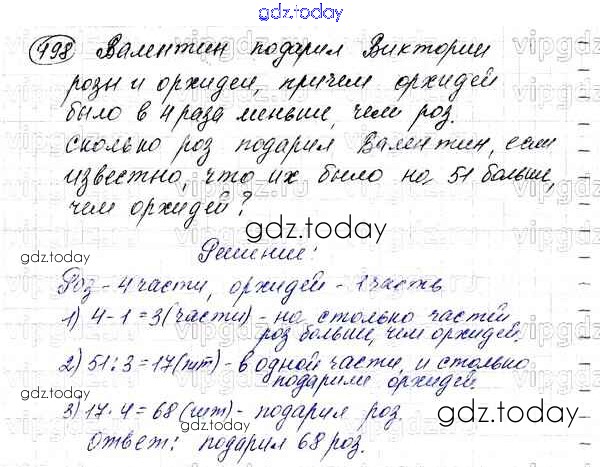 gdz.today
498 Валентин подарил Виктории
розы и орхидеи, причем орхидей
было в 4 раза меньше, чем роз.
Сколько роз подарил Валентин, если
известно, что их было на 51 больше,
чем орхидей?
gdz.today
Решение:
Роз - 4 части, орхидей - 1 часть
1) 4-1=3 (части) - на столько частей
роз больше, чем орхидей.
2) 51:3=17 (шт) - в одной части, и столько
подарили орхидей
gdz.today
3) 17·4=68 (шт) - подарил роз
gdz.today
Ответ: подарил 68 роз.